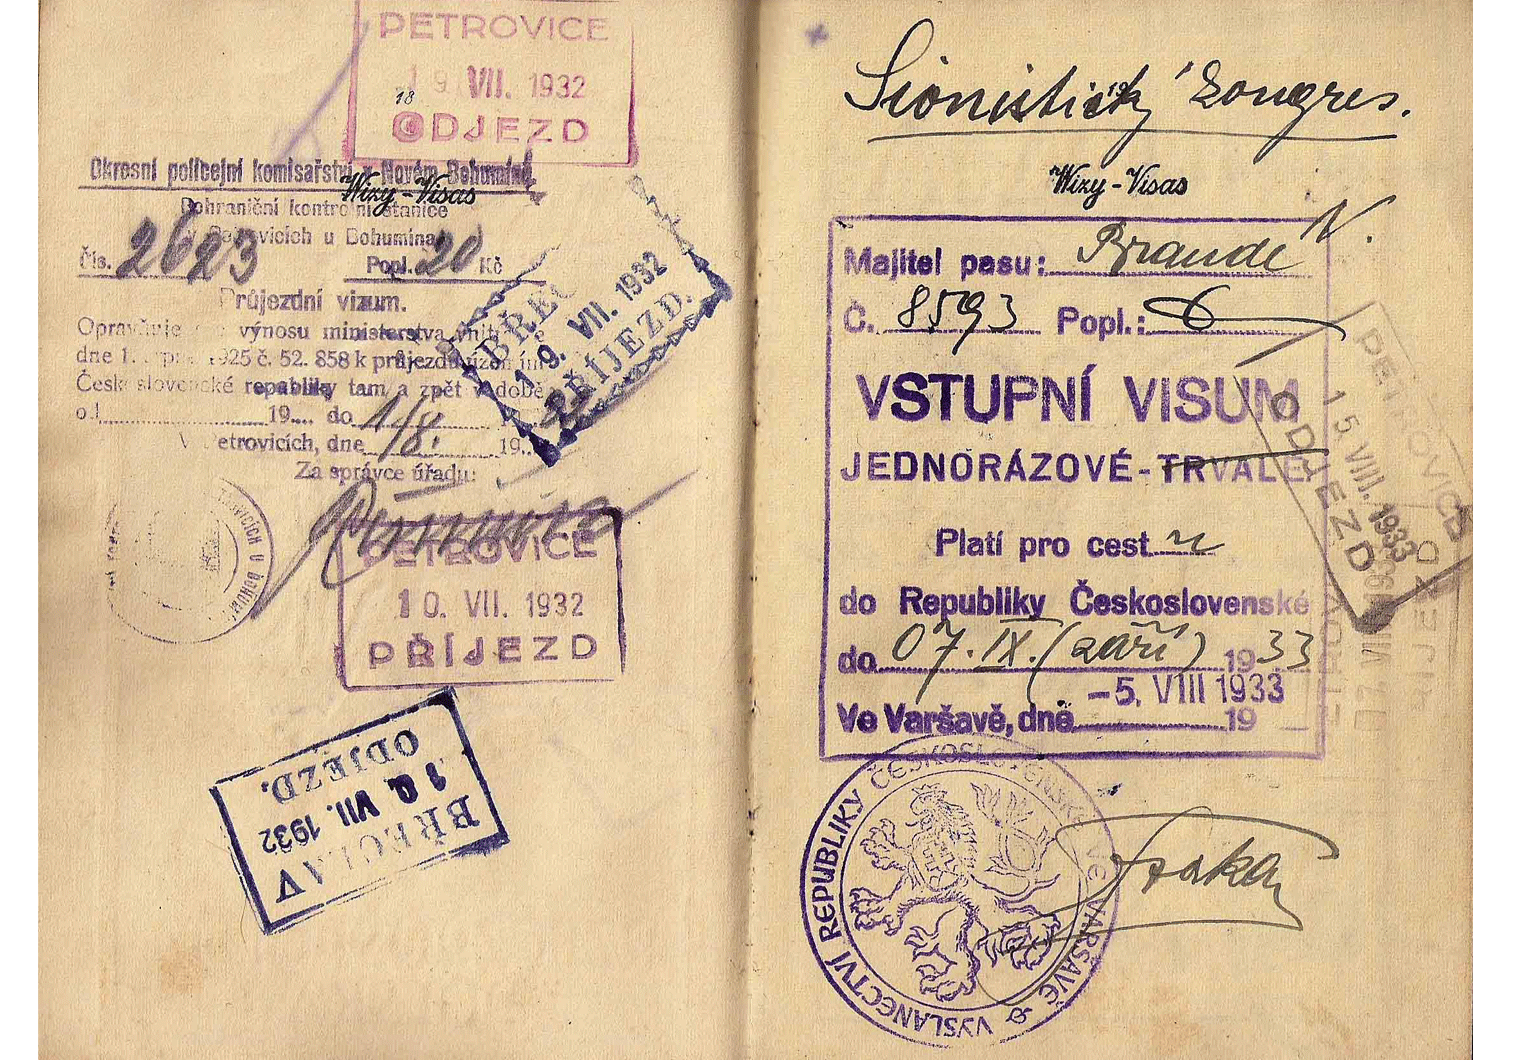 PETROVICE
19 VII. 1932
ODJEZD
18
Okresní policejní komisařství v Novém Bohumíně
Wizy-Visas
Pohraniční kontrolní stanice
v Petrovicích u Bohumína
Čís. 2623 Popl. 20 Kč
Průjezdní vizum.
Opravňuje výnosu ministerstva vnitra
dne 1. srpna 1925 č. 52. 858 k průjezdu územím
Československé republiky tam a zpět v době
od 19.... do 1/8. 19
V Petrovicích, dne 19..
Za správce úřadu:
BŘECLAV
19. VII. 1932
PŘÍJEZD.
PETROVICE
10. VII. 1932
PŘÍJEZD
BŘECLAV
10. VII. 1932
ODJEZD.
Sionistický kongres.
19
Wizy-Visas
Majitel pasu: Brande N.
Č. 8593 Popl.:
VSTUPNÍ VISUM
JEDNORÁZOVÉ-TRVALÉ
Platí pro cest u
do Republiky Československé
do 07. IX. (září) 1933
-5. VIII 1933
Ve Varšavě, dne 19
PETROVICE
15. VIII. 1933
ODJEZD
VYSLANECTVÍ REPUBLIKY ČESKOSLOVENSKÉ VE VARŠAVĚ